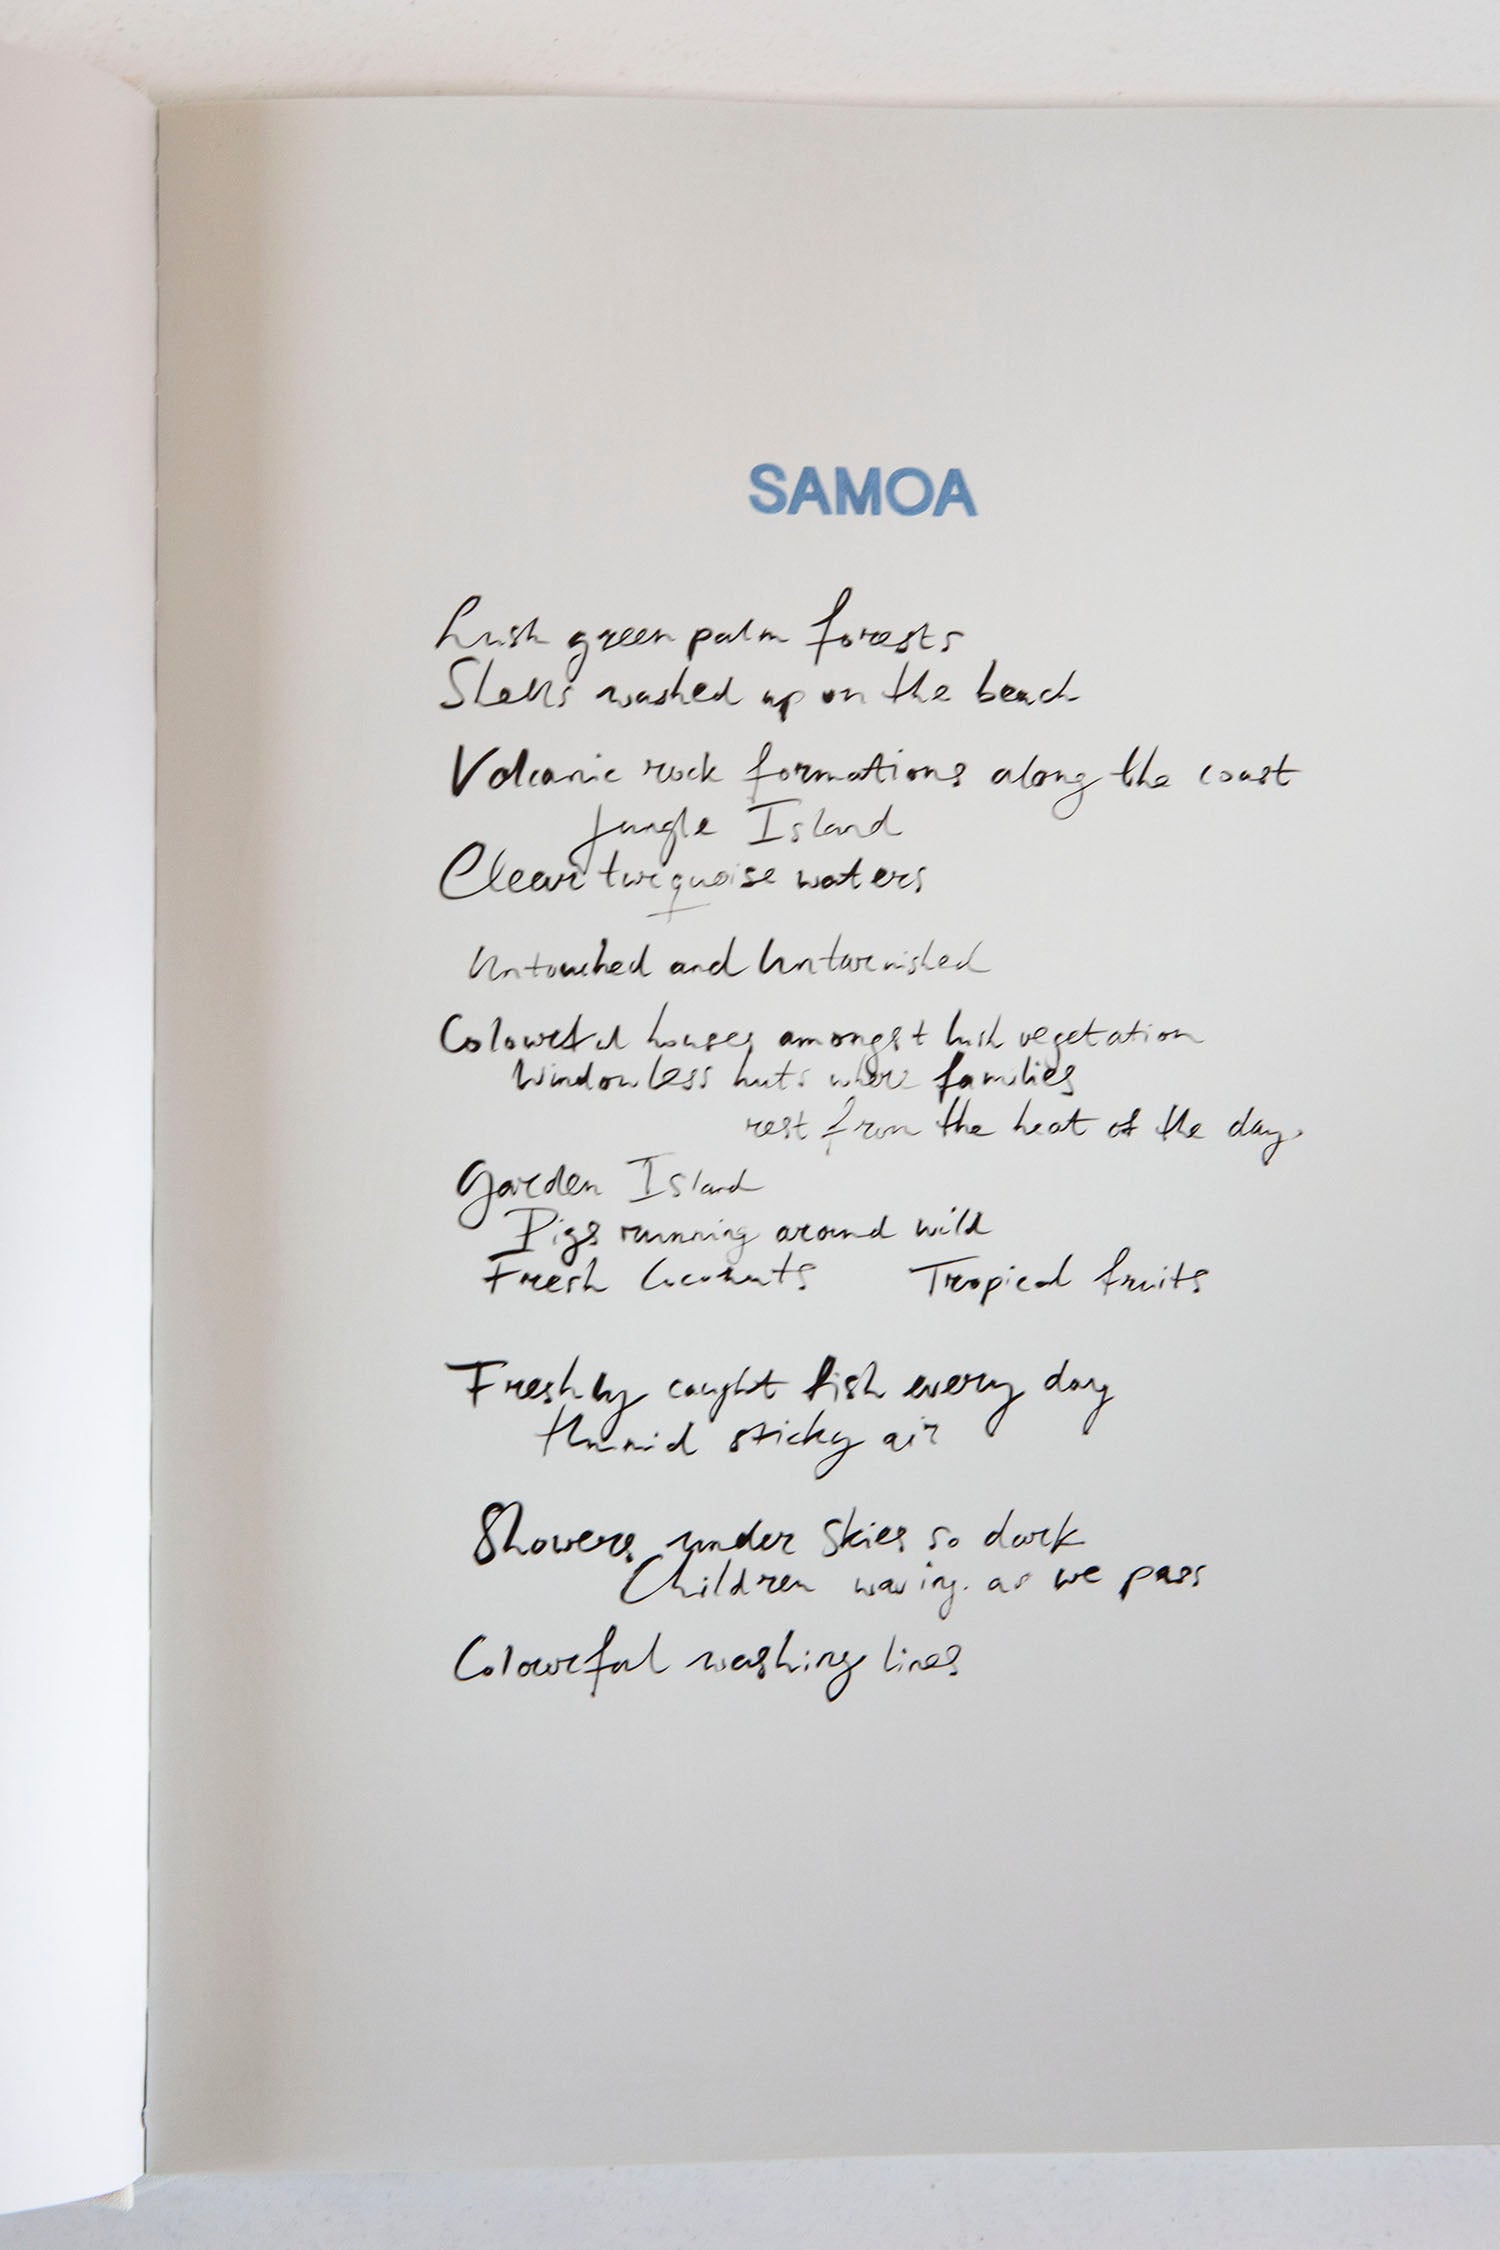 SAMOA
Lush green palm forests
Shells washed up on the beach
Volcanic rock formations along the coast
Jungle Island
Clear turquoise waters
Untouched and Untarnished
Colourful houses amongst lush vegetation
Windowless huts where families
rest from the heat of the day.
Garden Island
Pigs running around wild
Fresh Coconuts Tropical fruits
Freshly caught fish every day
Humid sticky air
Showers under skies so dark
Children waving as we pass
Colourful washing lines